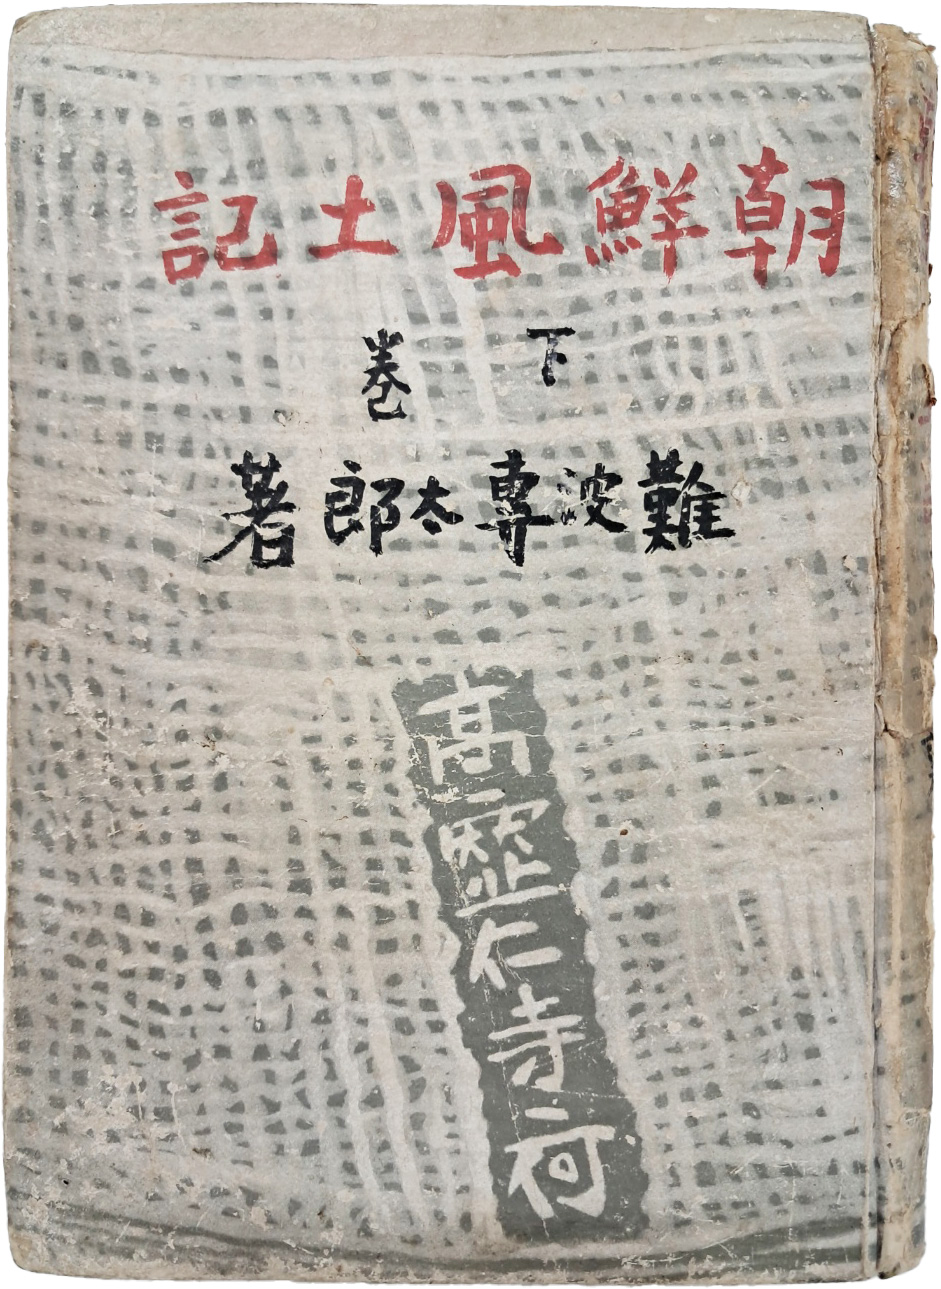 朝鮮風土記
下巻
難波専太郎著
高
仁寺